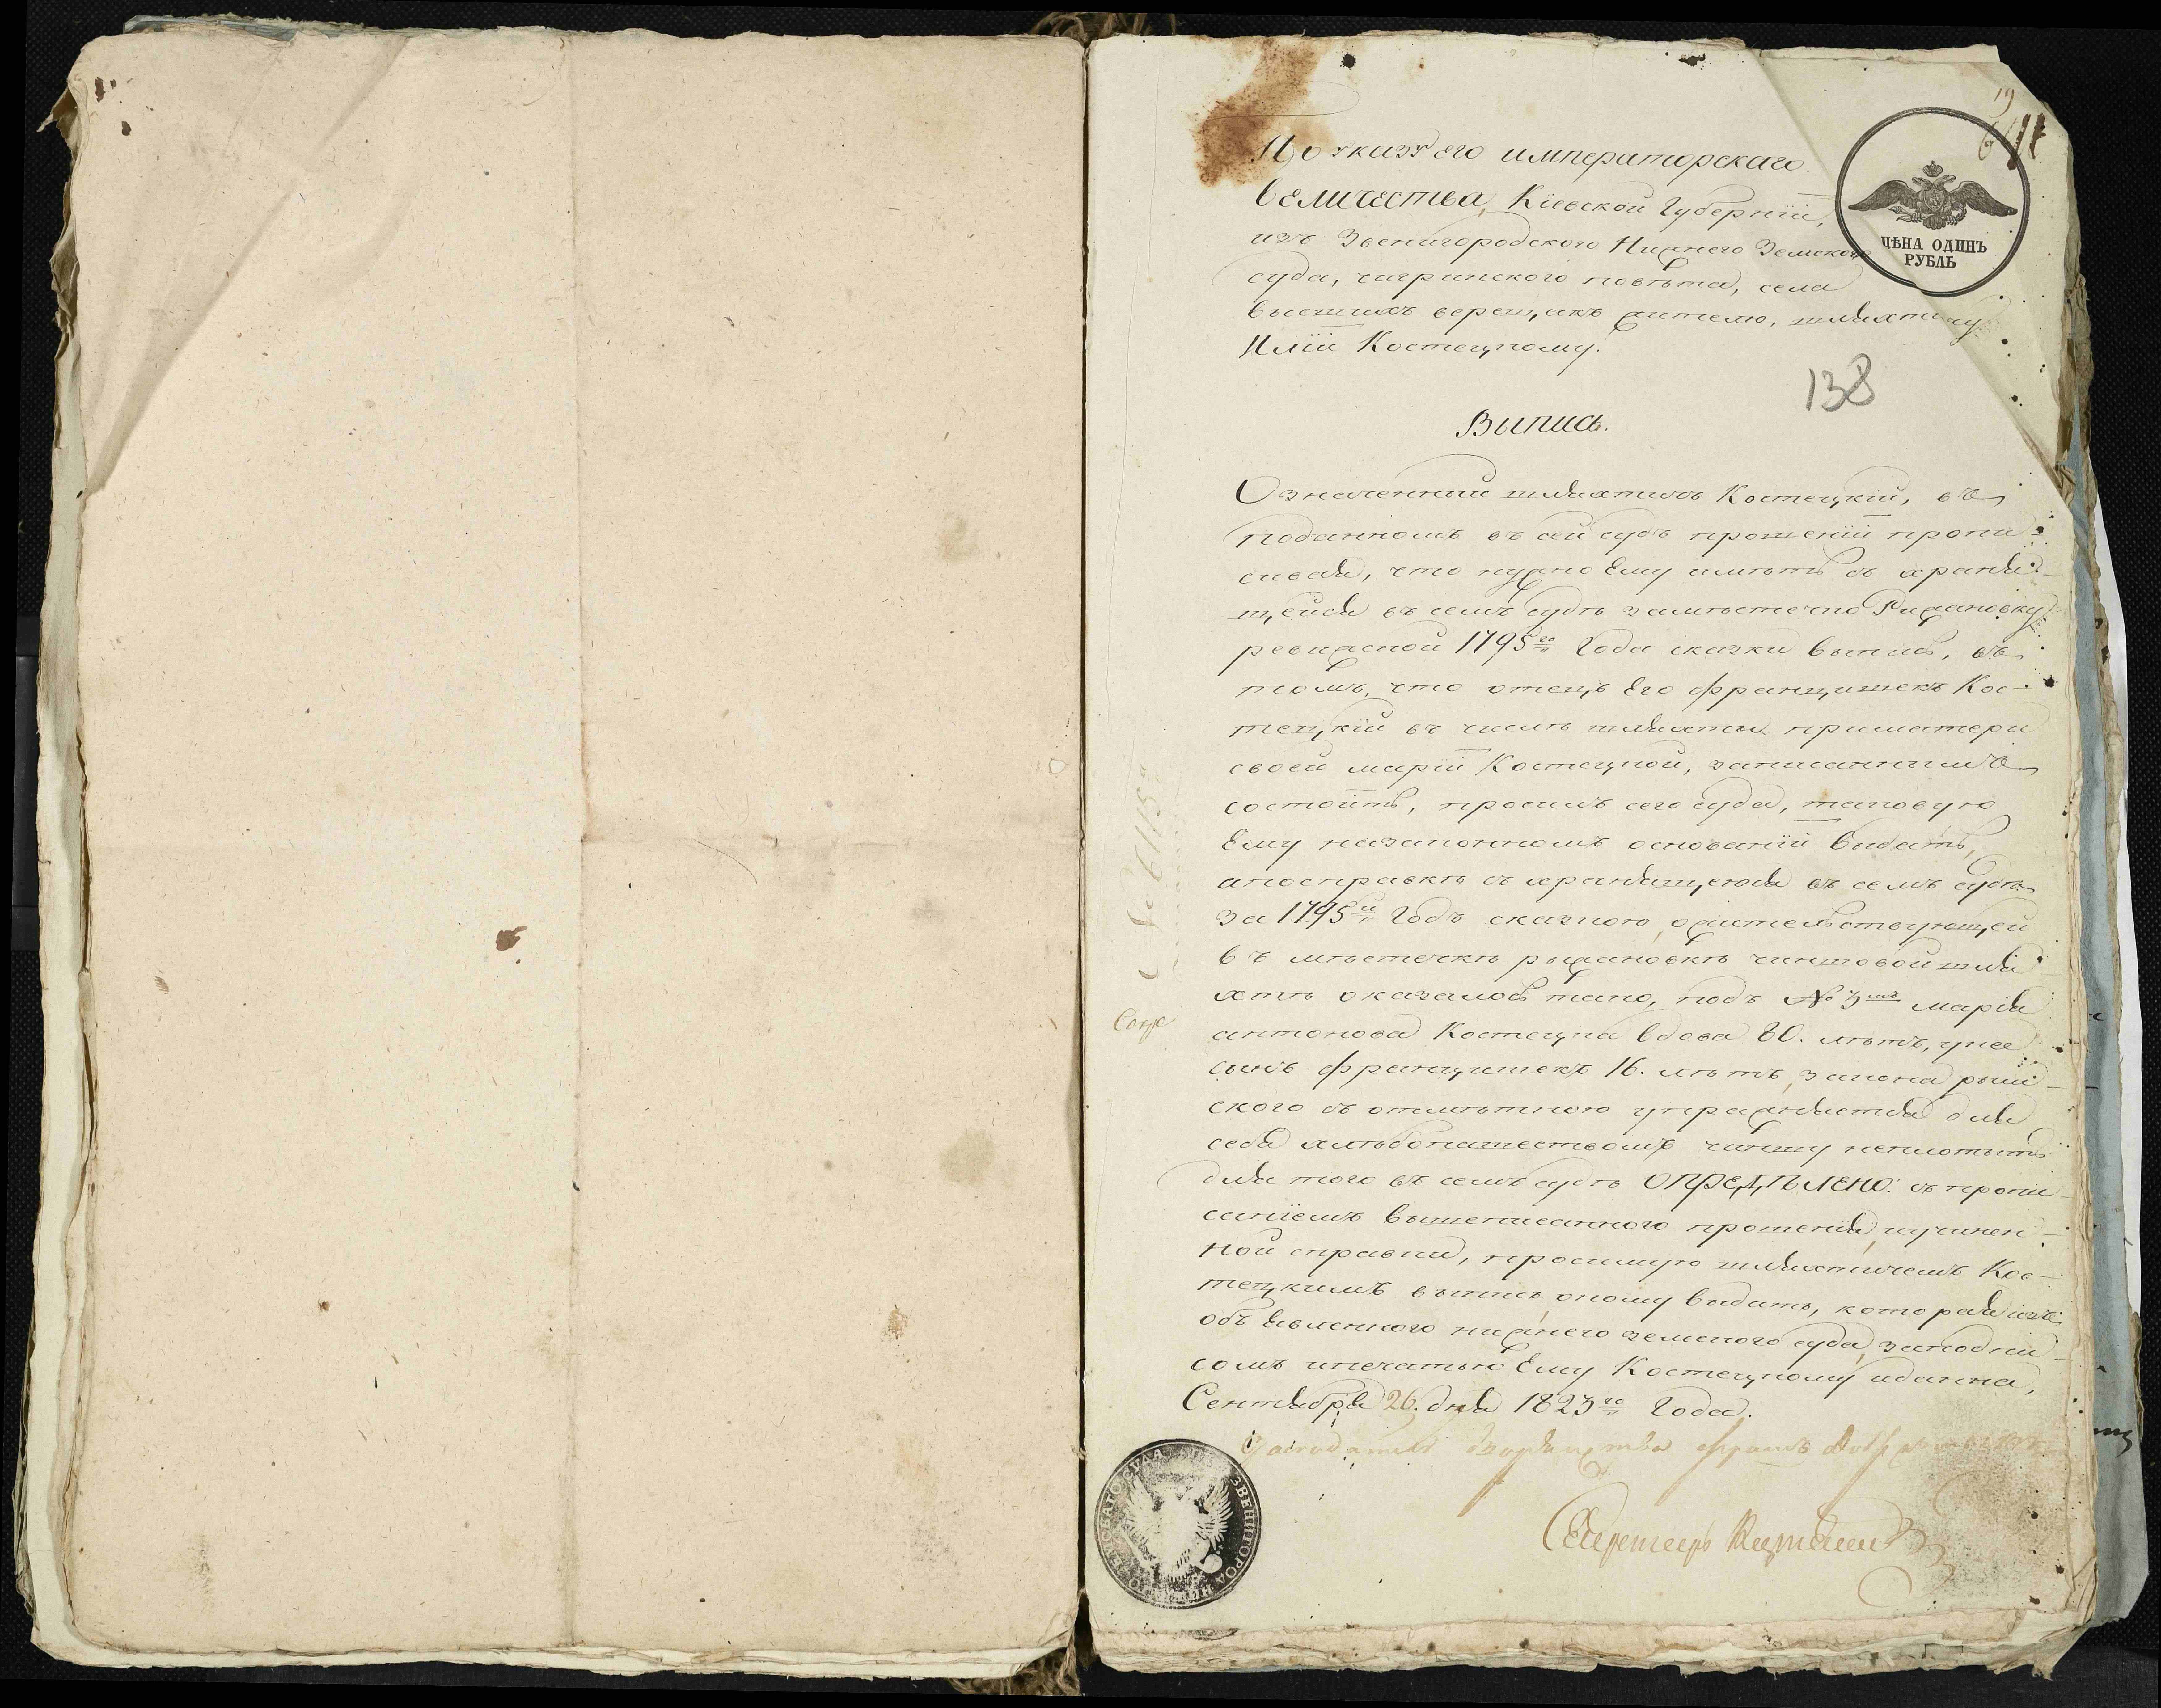 19
ЦѢНА ОДИНЪ
РУБЛЬ
По указу его императорскаго
величества, Кіевской Губерніи,
изъ Звенигородского Нижнего Земского
суда, чигринского повѣта, села
вересщакъ жителю, шляхтичу
Иліи Костецкому.
138
Выпись.
Означенный шляхтичъ Костецкій, въ
поданномъ въ сей судъ прошеніи пропи-
сивая, что нужно Ему имѣть съ храня-
щейся въ семъ судѣ заместечко Рижановку
ревижской 1795го Года сказки выпись, въ
томъ, что отецъ Его францишекъ Кос-
тецкій въ числѣ шляхты приматери
своей маріи Костецкой, записаннымъ
состоитъ, просилъ сего суда, таковую
Ему назаконномъ основаніи выдать,
апосправкѣ съ хранящеюся въ семъ судѣ
за 1795й Годъ сказкою, ожительствующей
въ мѣстечкѣ рыжановкѣ чиншовой шля-
хтѣ оказалось тако, подъ № 3мъ марія
антонова Костецка вдова 80. лѣтъ, унее
сынъ францишекъ 16. лѣтъ, закона рым-
ского съ отмѣткою упражняется для
себя хлѣбопашествомъ чиншу неплотытъ
для того въ семъ судѣ ОПРЕДѢЛЕНО: съ пропи-
саніемъ вышеписанного прошенія, иучинен-
ной справки, просимую шляхтичемъ Кос-
тецкимъ выпись оному выдать, которая изъ
объявленного нижнего земского суда, заподпи-
сомъ ипечатью Ему Костецкому идана,
Сентября 26. дня 1823го Года.
Секретарь